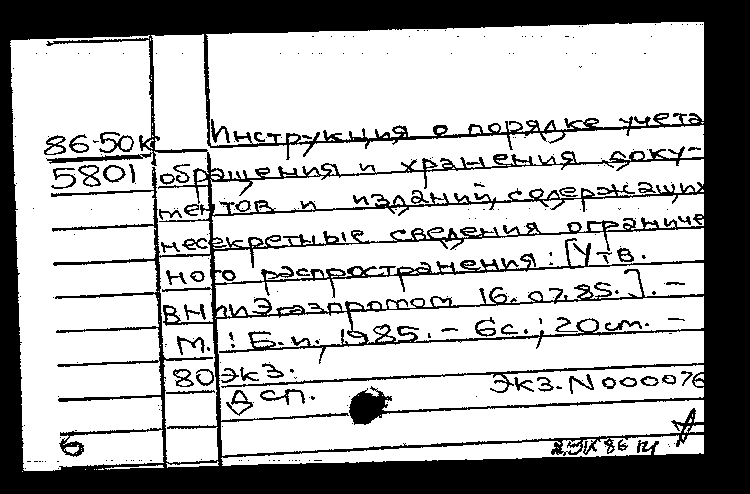 86-50к
5801
Инструкция о порядке учета
обращения и хранения доку-
ментов и изданий, содержащих
несекретные сведения ограниче
ного распространения: [Утв.
ВНИИЭгазпромом 16.07.85.]. –
М.: Б.и., 1985. – 6с.; 20см. –
80 экз.
ДСП.
Экз. N 000076
6